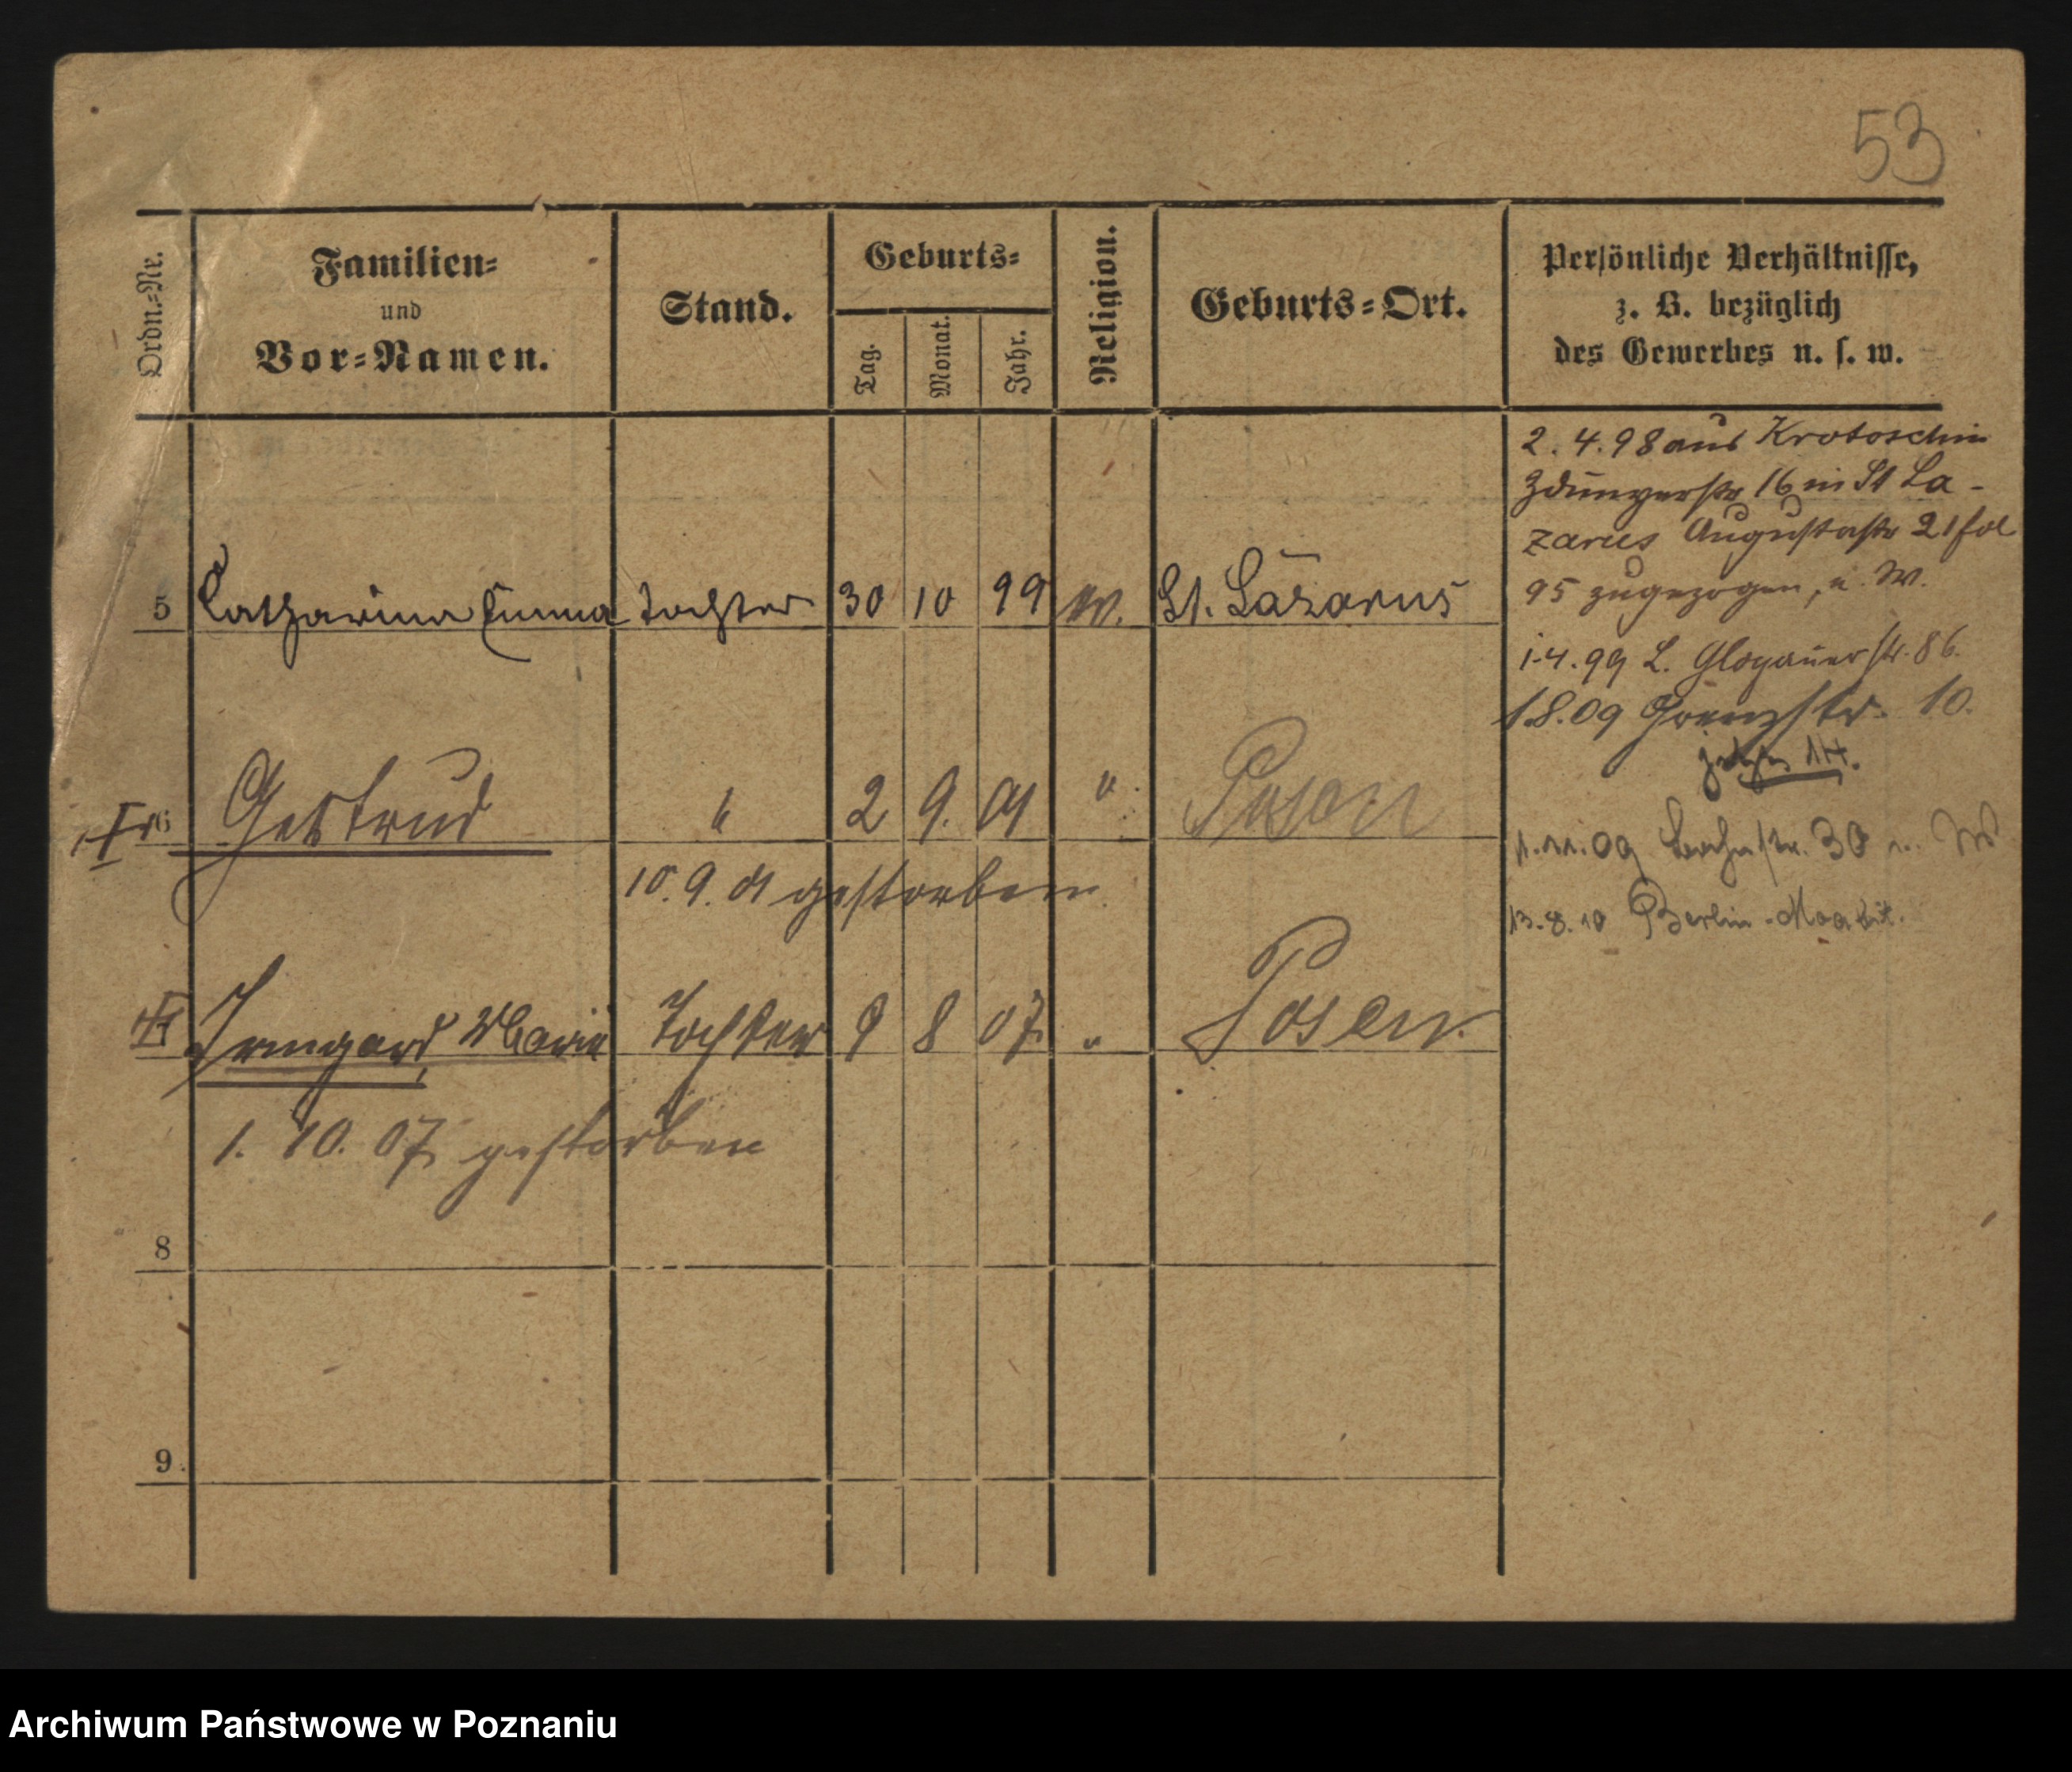 53
Ordn.=Nr.
Familien=
und
Vor=Namen.
Stand.
Geburts=
Tag.
Monat.
Jahr.
Religion.
Geburts=Ort.
Persönliche Verhältnisse,
z. B. bezüglich
des Gewerbes u. s. w.
2. 4. 98 aus Krotoschin
Zdunyerstr 16 in St La-
zarus Augustastr 21 fol
95 zugezogen, u. W.
1.4.99 L. Glogauerstr. 86.
1.8.09 Grenzstr. 10.
jetzt 14.
1.11.09 30 u. W
13.8.10 Berlin-Moabit.
5 Catharina Emma Tochter 30 10 99 St. Lazarus
6 Gertrud " 2 9. 01 " Posen
10. 9. 01 gestorben
Irmgard, Marie Tochter 9 8 07 " Posen.
1. 10. 07 gestorben
8
9.
Archiwum Państwowe w Poznaniu